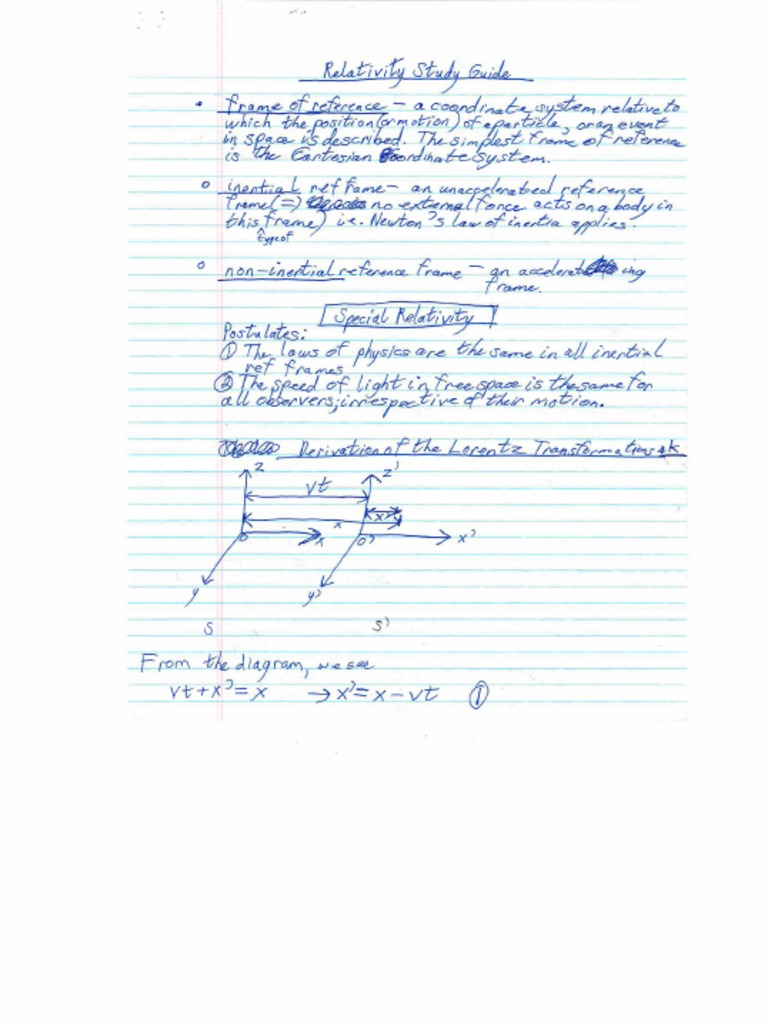 Relativity Study Guide
• frame of reference – a coordinate system relative to
which the position (or motion) of a particle, or an event
in space is described. The simplest frame of reference
is the Cartesian coordinate system.
inertial ref frame – an unaccelerated reference
frame (=) no external force acts on a body in
this frame) i.e. Newton's law of inertia applies.
type of
non-inertial reference frame – an accelerating
frame.
Special Relativity
Postulates:
① The laws of physics are the same in all inertial
ref frames
② The speed of light in free space is the same for
all observers; irrespective of their motion.
Derivation of the Lorentz Transformations
z z'
vt
x x'
o x o' x'
y y'
S S'
From the diagram, we see
vt + x' = x → x' = x – vt ①